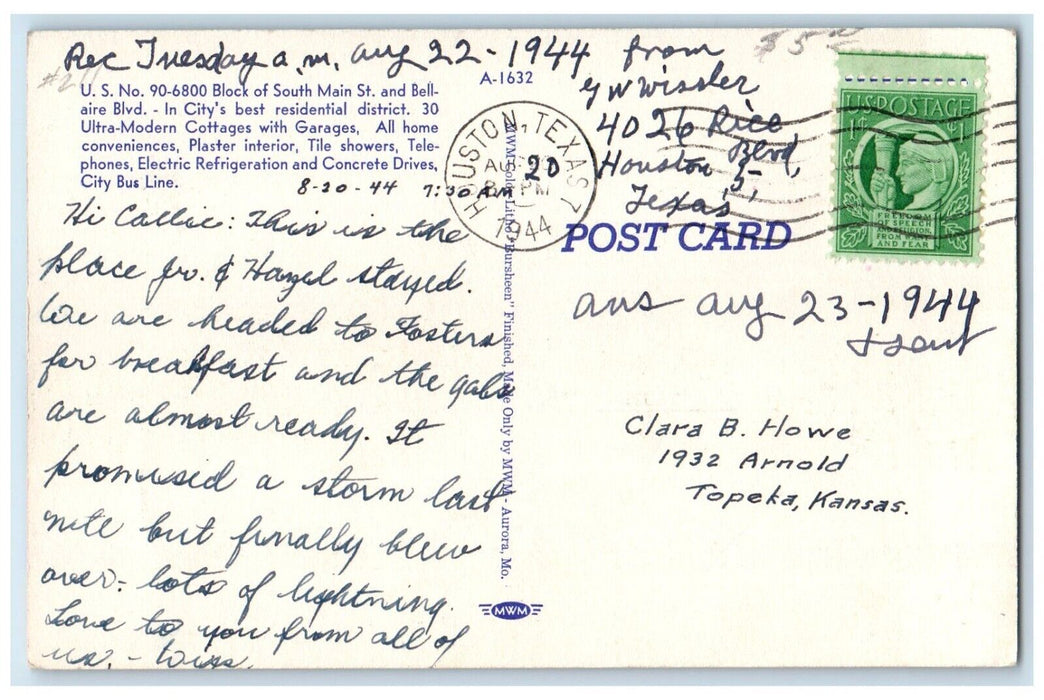 Rec Tuesday a.m. aug 22-1944 from
G W Wissler
4026 Rice
Blvd,
Houston 5,
Texas
$5
A-1632
U. S. No. 90-6800 Block of South Main St. and Bell-
aire Blvd. - In City's best residential district. 30
Ultra-Modern Cottages with Garages, All home
conveniences, Plaster interior, Tile showers, Tele-
phones, Electric Refrigeration and Concrete Drives,
City Bus Line.
8-20-44 7:30 AM
Hi Callie: This is the
place Jr. & Hazel stayed.
We are headed to Fosters
for breakfast and the gals
are almost ready. It
promised a storm last
nite but finally blew
over - lots of lightning.
Love to you from all of
us. - Wiss.
HOUSTON, TEXAS
AUG 20
PM
1944
MWM Color-Litho "Bursheen" Finished, Made Only by MWM - Aurora, Mo.
MWM
POST CARD
U.S. POSTAGE
1¢ 1¢
FREEDOM
OF SPEECH
AND RELIGION
FROM WANT
AND FEAR
ans aug 23-1944
& sent
Clara B. Howe
1932 Arnold
Topeka, Kansas.